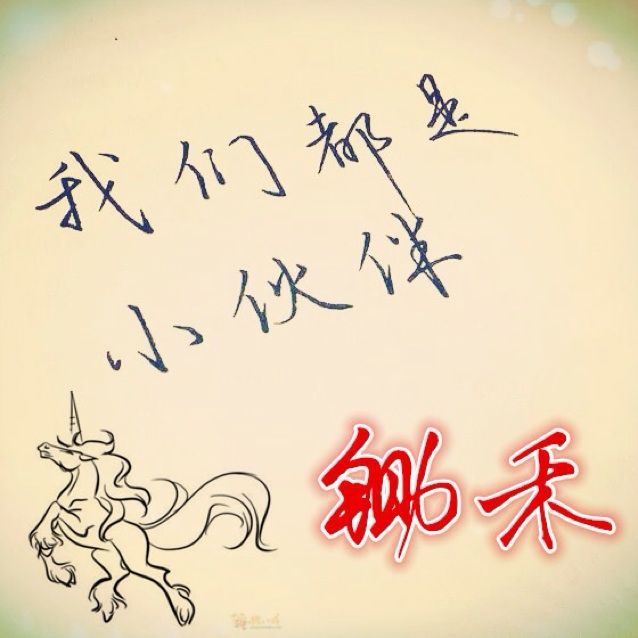 我们都是
小伙伴
锄禾